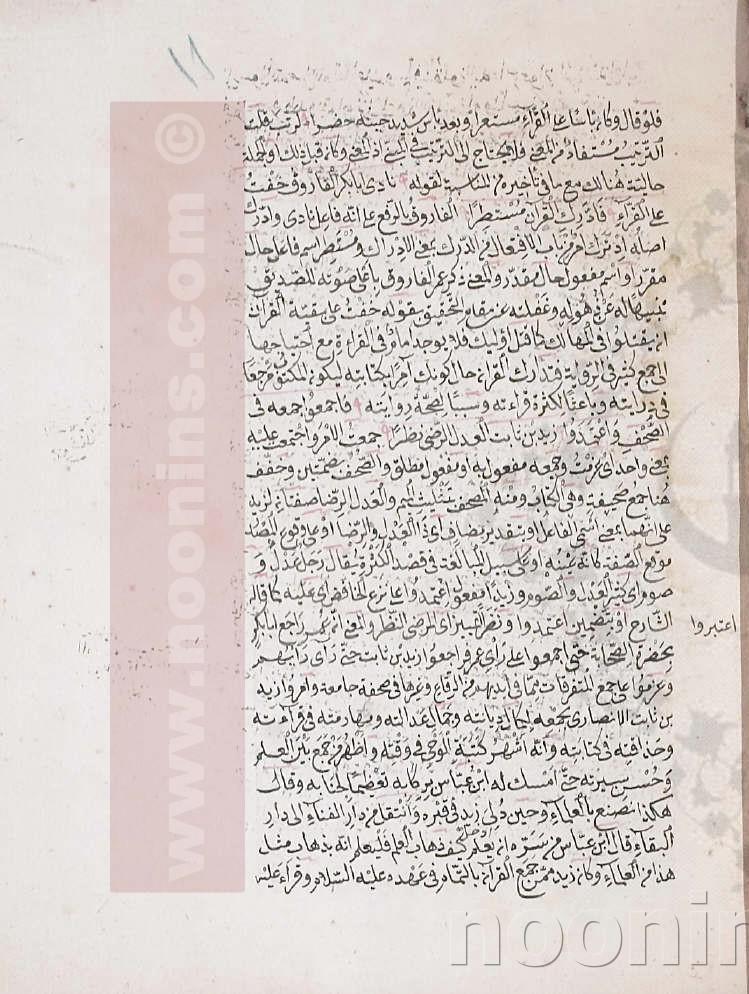 ١١
فلو قال وكان باسا على القراء مستعرا وبعد باس شديد حينه حضرا ذكرت قلت
الترتيب مستفاد من المعنى فلا يحتاج الى الترتيب في المبنى اذ المعنى وكان قبل ذلك او جملة
حالية هنالك مع ما في تأخيره من المناسبة لقوله نادى ابا بكر الفاروق خفت
على القراء فادرك القرآن مستطرا الفاروق بالرفع على انه فاعل نادى وادرك
اصله ادترك امر من باب الافتعال من الدرك بمعنى الادراك ومستطر اسم فاعل حال
مقرر او اسم مفعول حال مقدر والمعنى ذكر عمر الفاروق باعلى صوته للصديق
تنبيها له عن ذهوله وغفلته عن مقام التحقيق بقوله خفت على بقية القرآن
ان يقتلوا في المهالك كما قتل اوليك فلا يوجد ماهر في القراءة مع احتياجها
الى جمع كثير في الرواية فتدارك القراءن حال كونك آمرا بكتابته ليكون المكتوب مرجعا
في درايته وباعثا لكثرة قراءته وسببا لصحة روايته فاجمعوا جمعه في
الصحف واعتمدوا زيد بن ثابت العدل الرضى نظرا جمعت الامر واجتمعت عليه
بمعنى واحد اى عزمت وجمعه مفعول به او مفعول مطلق والصحف بضمتين وخفف
هنا جمع صحيفة وهي الكتاب ومنه المصحف بتثليث الميم والعدل الرضا صفتان لزيد
على انهما بمعنى اسمى الفاعل او بتقدير مضاف اى ذا العدل والرضا او على وقوع المصدر
موقع الصفة كانه عينه او على سبيل المبالغة في قصد الكثرة يقال رجل عدل و
صوم اى كثير العدل والصوم وزيدا مفعول اعتمدوا على نزع الخافض اى عليه كما قال
الشارح او بتضمين اعتمدوا ونظرا تمييز اى المرضى النظر والمعنى ان عمر راجع ابا بكر
اعتبروا
بحضرة الصحابة حتى اجمعوا على رأى عمر فراجعوا زيد بن ثابت حتى رأى رأيهم
وعزموا على جمع المتفرقات مما في ايديهم من الرقاع وغيرها في صحيفة جامعة وامروا زيد
بن ثابت الانصارى بجمعه لكمال ديانته وجمال عدالته ومهارته في قراءته
وحذاقته في كتابته وانه اشهر كتبة الوحى في وقته واظهر من جمع بين العلم
وحسن سيرته حتى امسك له ابن عباس بركابه تعظيما لجنابه وقال
هكذا نصنع بالعلماء وحين دلى زيد في قبره وانتقل من دار الفناء الى دار
البقاء قال ابن عباس من سره ان يعلم كيف ذهاب العلم فليعلم انه بذهاب مثل
هذا من العلماء وكان زيد ممن جمع القرآن بالتمام في عهده عليه السلام وقراء عليه
www.noonins.com ©
noonin